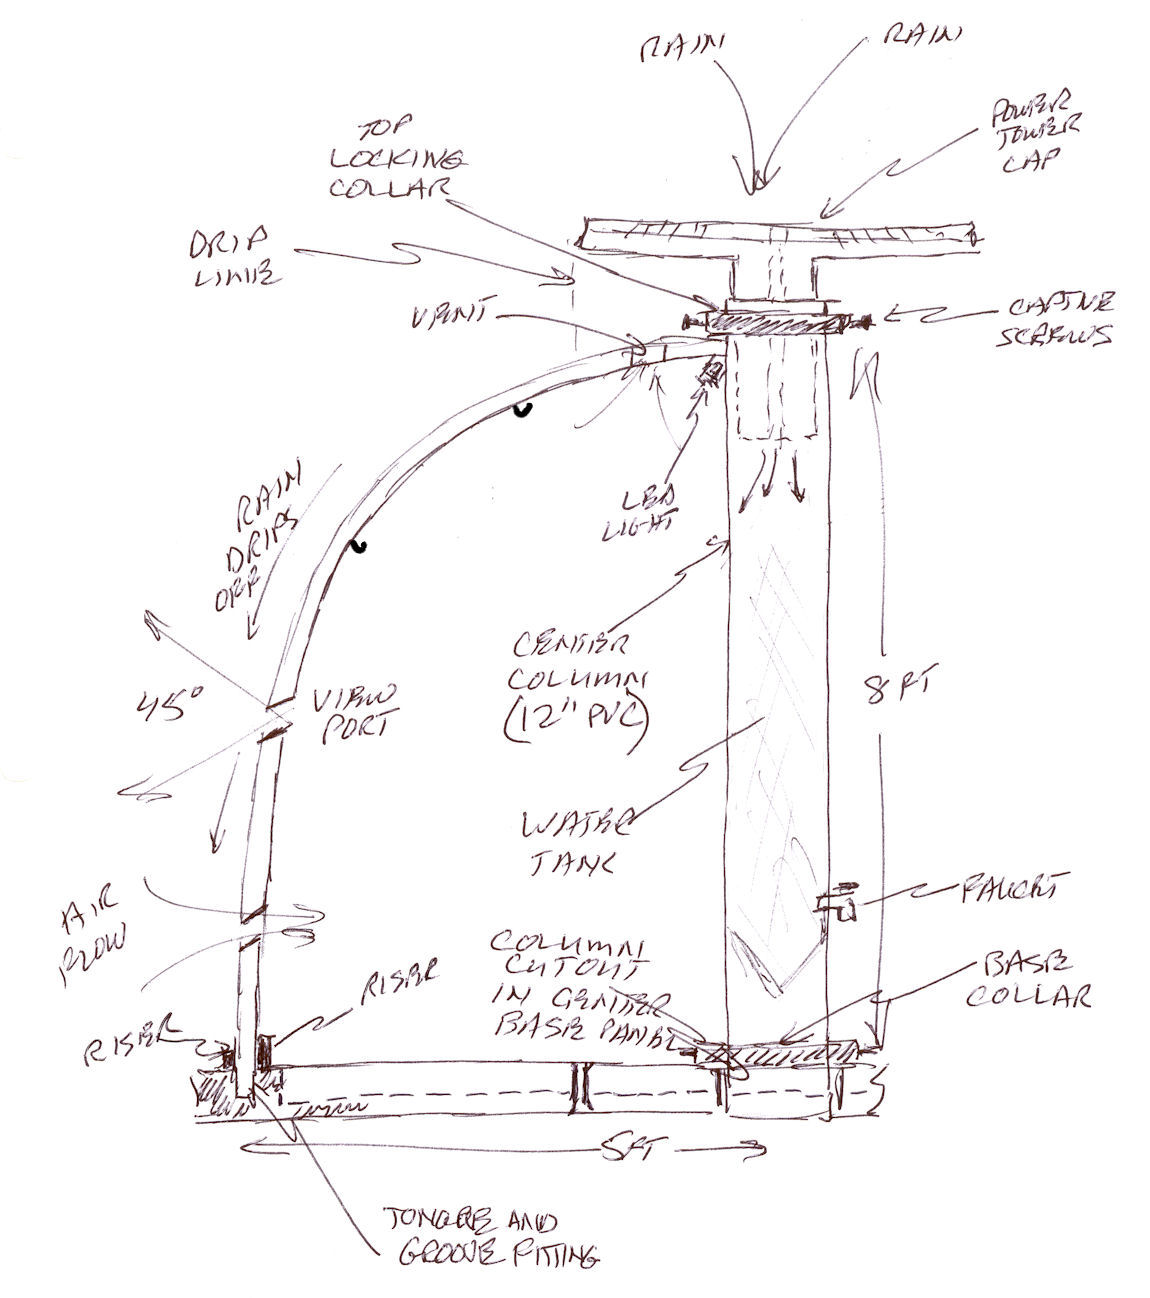 RAIN
RAIN
POWER
TOWER
CAP
TOP
LOCKING
COLLAR
DRIP
LINE
VENT
CAPTIVE
SCREWS
LED
LIGHT
RAIN
DRIPS
OFF
45°
VIEW
PORT
CENTER
COLUMN
(12" PVC)
8 FT
WATER
TANK
FAUCET
AIR
FLOW
RISER
RISER
COLUMN
CUTOUT
IN CENTER
BASE PANEL
BASE
COLLAR
5FT
TONGUE AND
GROOVE FITTING